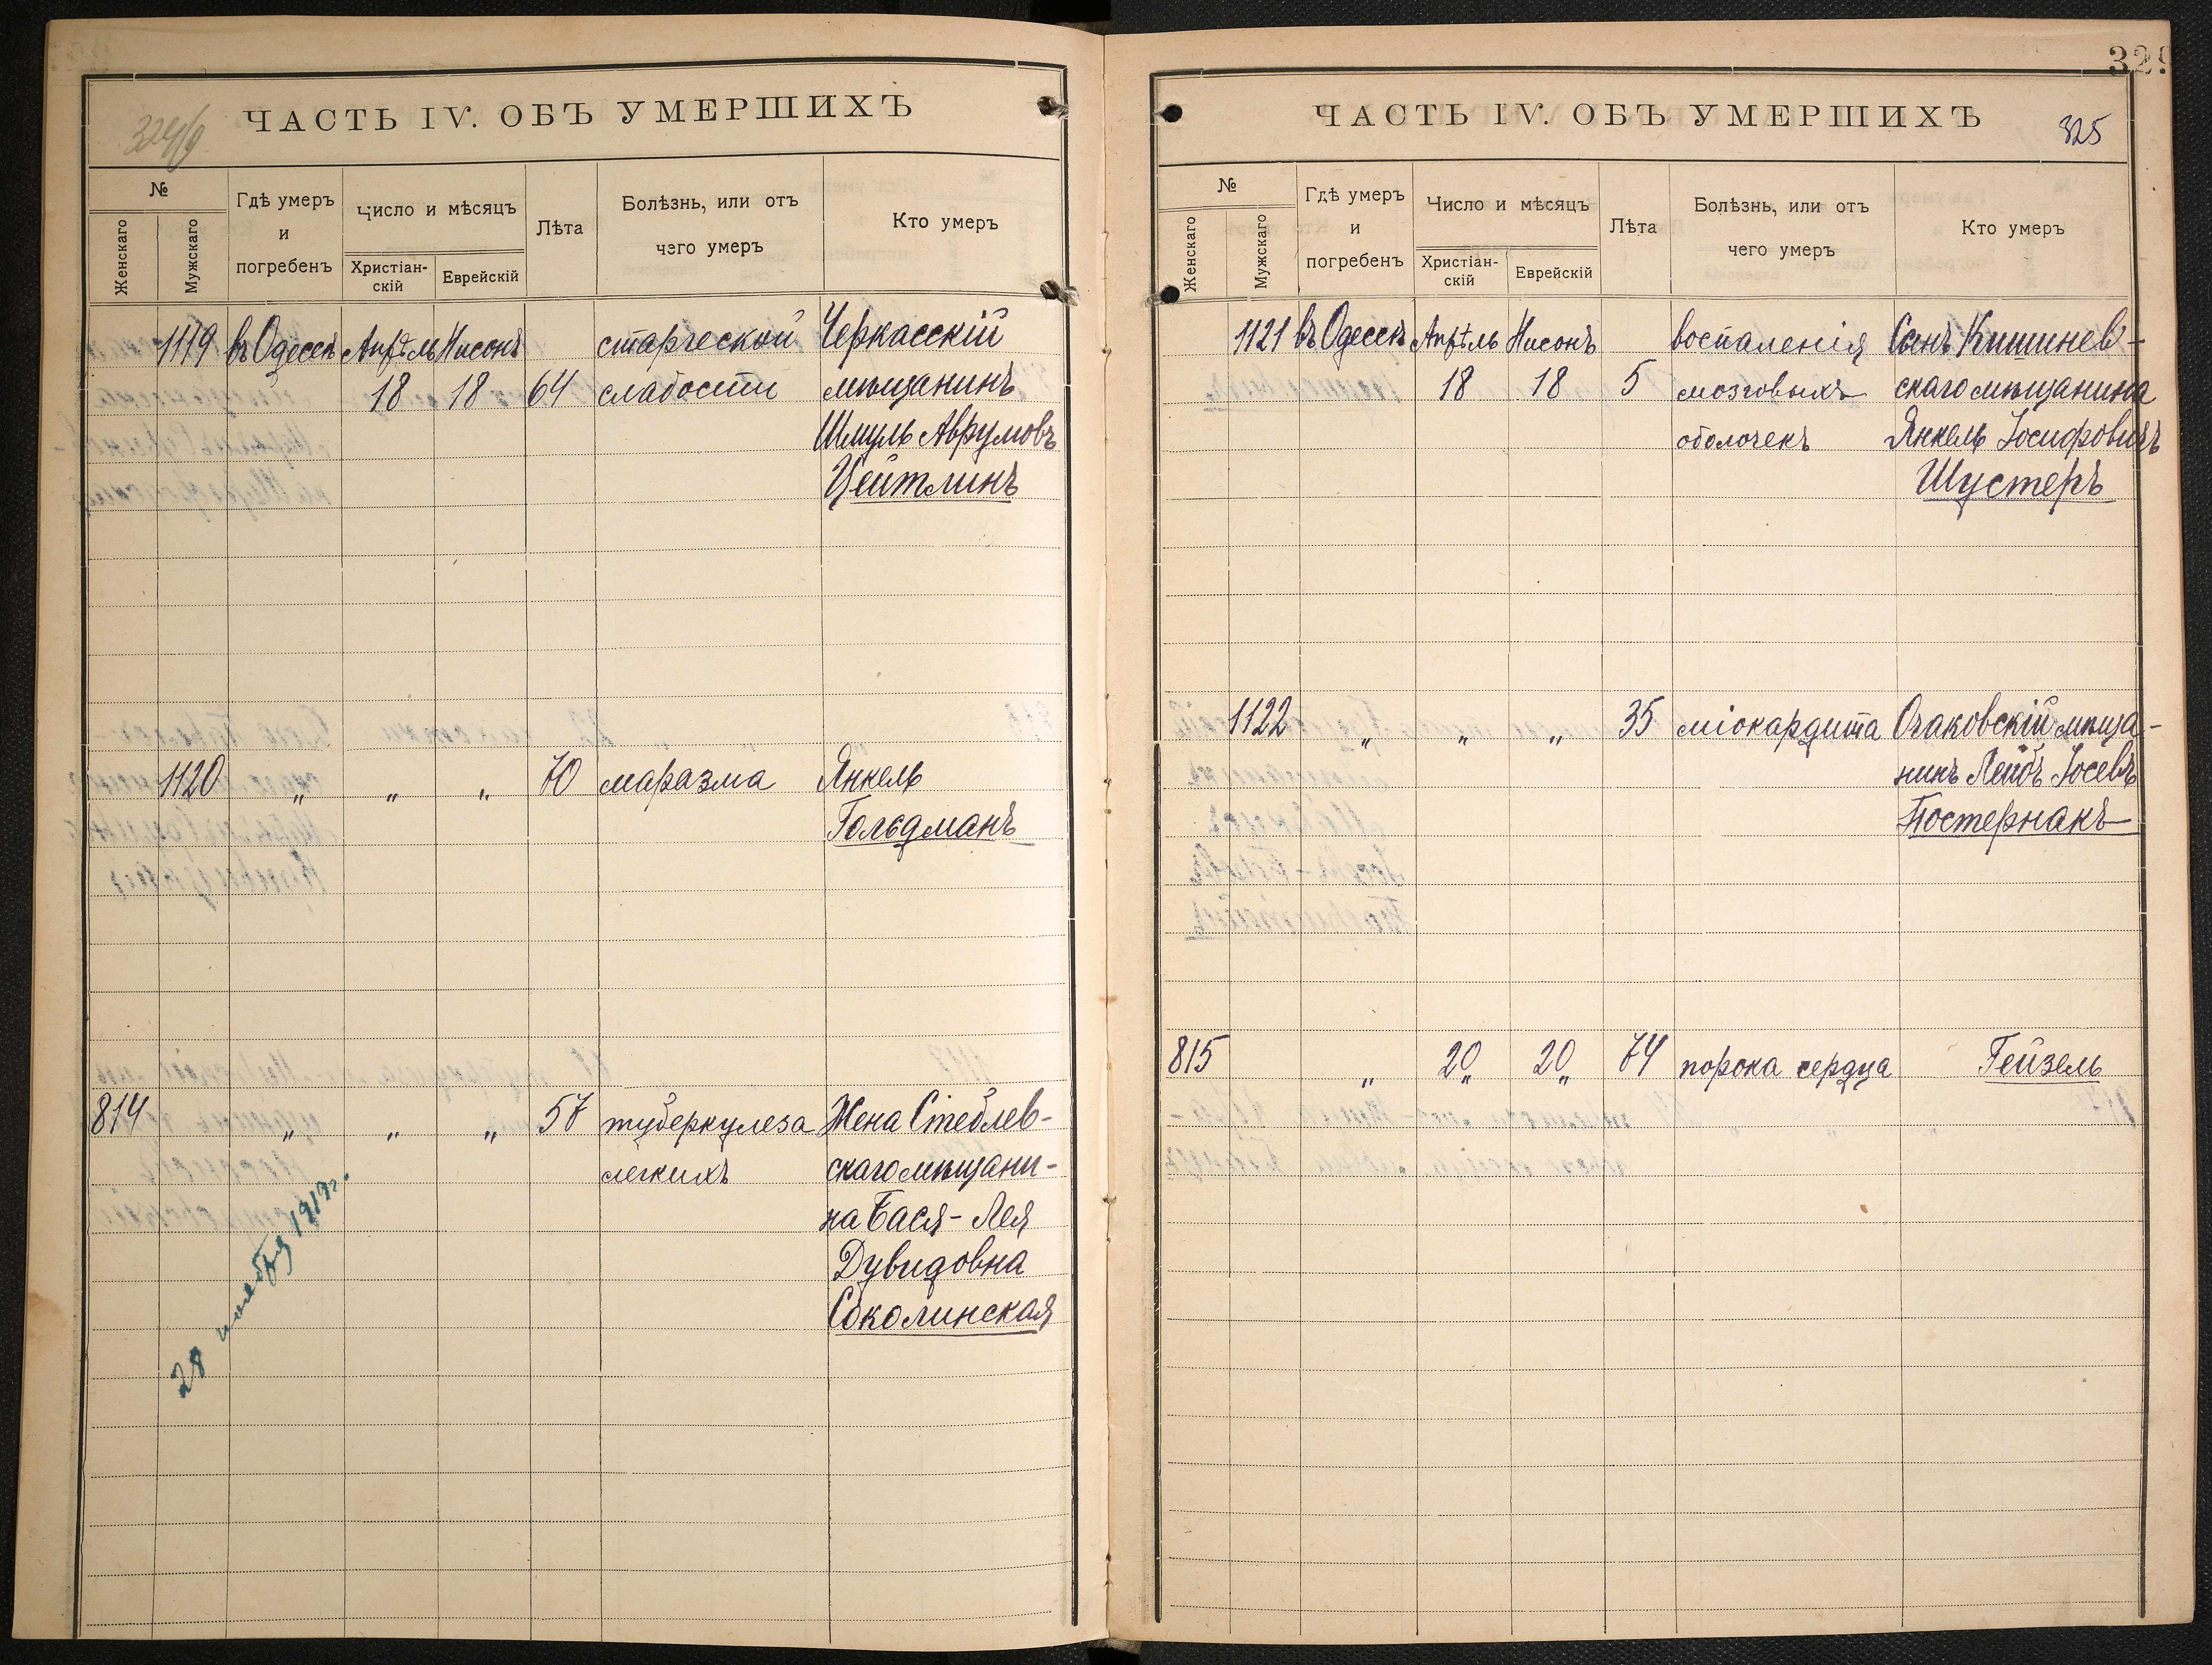 ЧАСТЬ IV. ОБЪ УМЕРШИХЪ
№
Женскаго
Мужскаго
Гдѣ умеръ
и
погребенъ
Число и мѣсяцъ
Христіан-
скій
Еврейскій
Лѣта
Болѣзнь, или отъ
чего умеръ
Кто умеръ
1119 въ Одессѣ Апрѣль Нисонъ старческой Черкасскій
18 18 64 слабости мѣщанинъ
Шмуль Аврумовъ
Цейтлинъ
1120 „ „ „ 70 маразма Янкель
Гольдманъ
814 „ „ „ 57 туберкулеза Жена Стеблев-
легкихъ скаго мѣщани-
на Бася-Лея
Дувидовна
Соколинская
28 ноября 1919г.
329
ЧАСТЬ IV. ОБЪ УМЕРШИХЪ
325
№
Женскаго
Мужскаго
Гдѣ умеръ
и
погребенъ
Число и мѣсяцъ
Христіан-
скій
Еврейскій
Лѣта
Болѣзнь, или отъ
чего умеръ
Кто умеръ
1121 въ Одессѣ Апрѣль Нисонъ воспаленія Сынъ Кишинев-
18 18 5 мозговыхъ скаго мѣщанина
оболочекъ Янкель Іосифовичъ
Шустеръ
1122 „ „ „ 35 міокардита Очаковскій мѣща-
нинъ Лейбъ Іосевъ
Постернакъ
815 „ 20„ 20„ 74 порока сердца Гейзель